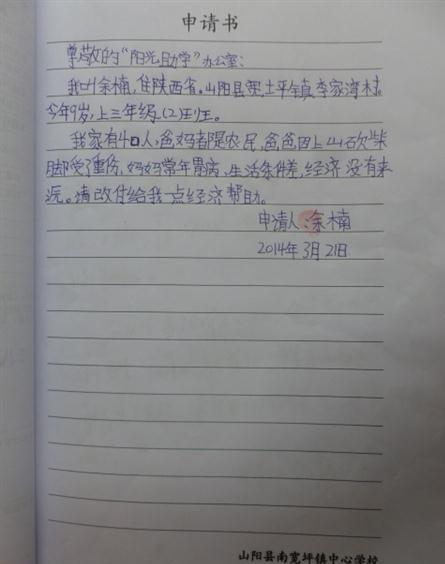 申请书
尊敬的“阳光助学”办公室：
我叫余楠，住陕西省。山阳县宽土平镇李家湾村。
今年9岁，上三年级(2)班。
我家有4口人，爸妈都是农民，爸爸因上山砍柴
脚受重伤，妈妈常年胃病，生活条件差，经济没有来
源。请政府给我一点经济帮助。
申请人：涂楠
2014年3月21日
山阳县南宽坪镇中心学校